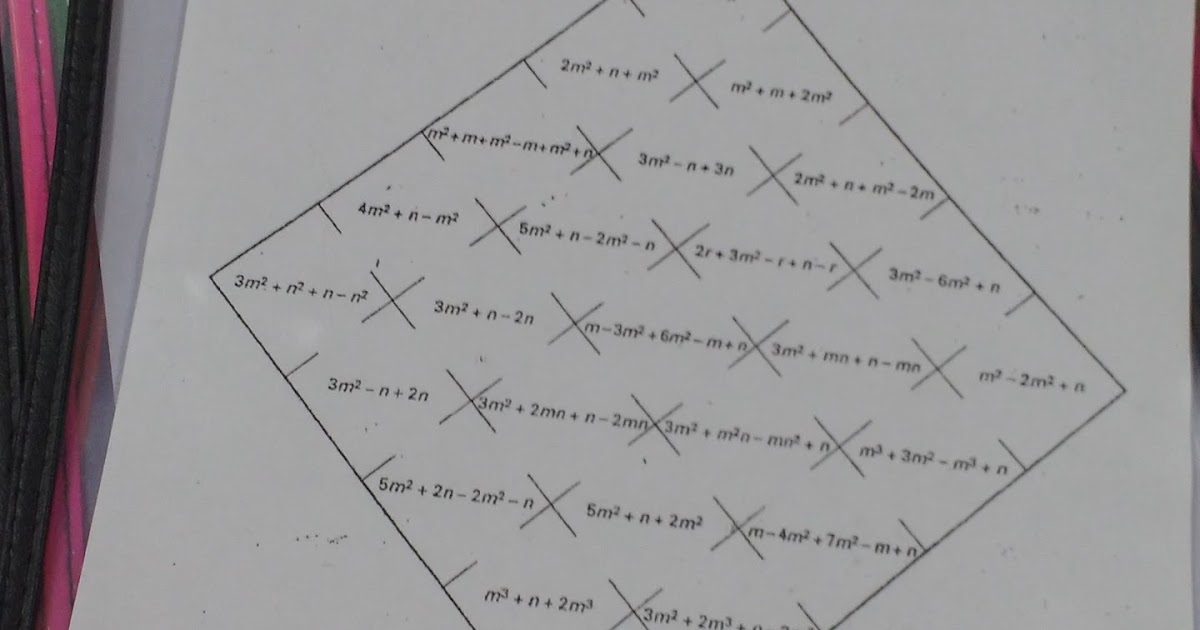 2m² + n + m² m² + m + 2m²
m² + m + m² – m + m² + n 3m² – n + 3n 2m² + n + m² – 2m
4m² + n – m² 5m² + n – 2m² – n 2r + 3m² – r + n – r 3m² – 6m² + n
3m² + n² + n – n² 3m² + n – 2n m – 3m² + 6m² – m + n 3m² + mn + n – mn m² – 2m² + n
3m² – n + 2n 3m² + 2mn + n – 2mn 3m² + m²n – mn² + n m³ + 3m² – m³ + n
5m² + 2n – 2m² – n 5m² + n + 2m² m – 4m² + 7m² – m + n
m³ + n + 2m³ 3m² + 2m³ +